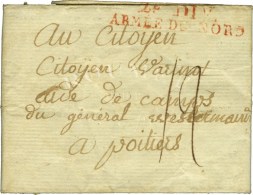 2e DIVon
ARMÉE DU NORD
Au Citoyen
Citoyen Varing
aide de camps
du général Westermann
a poitiers